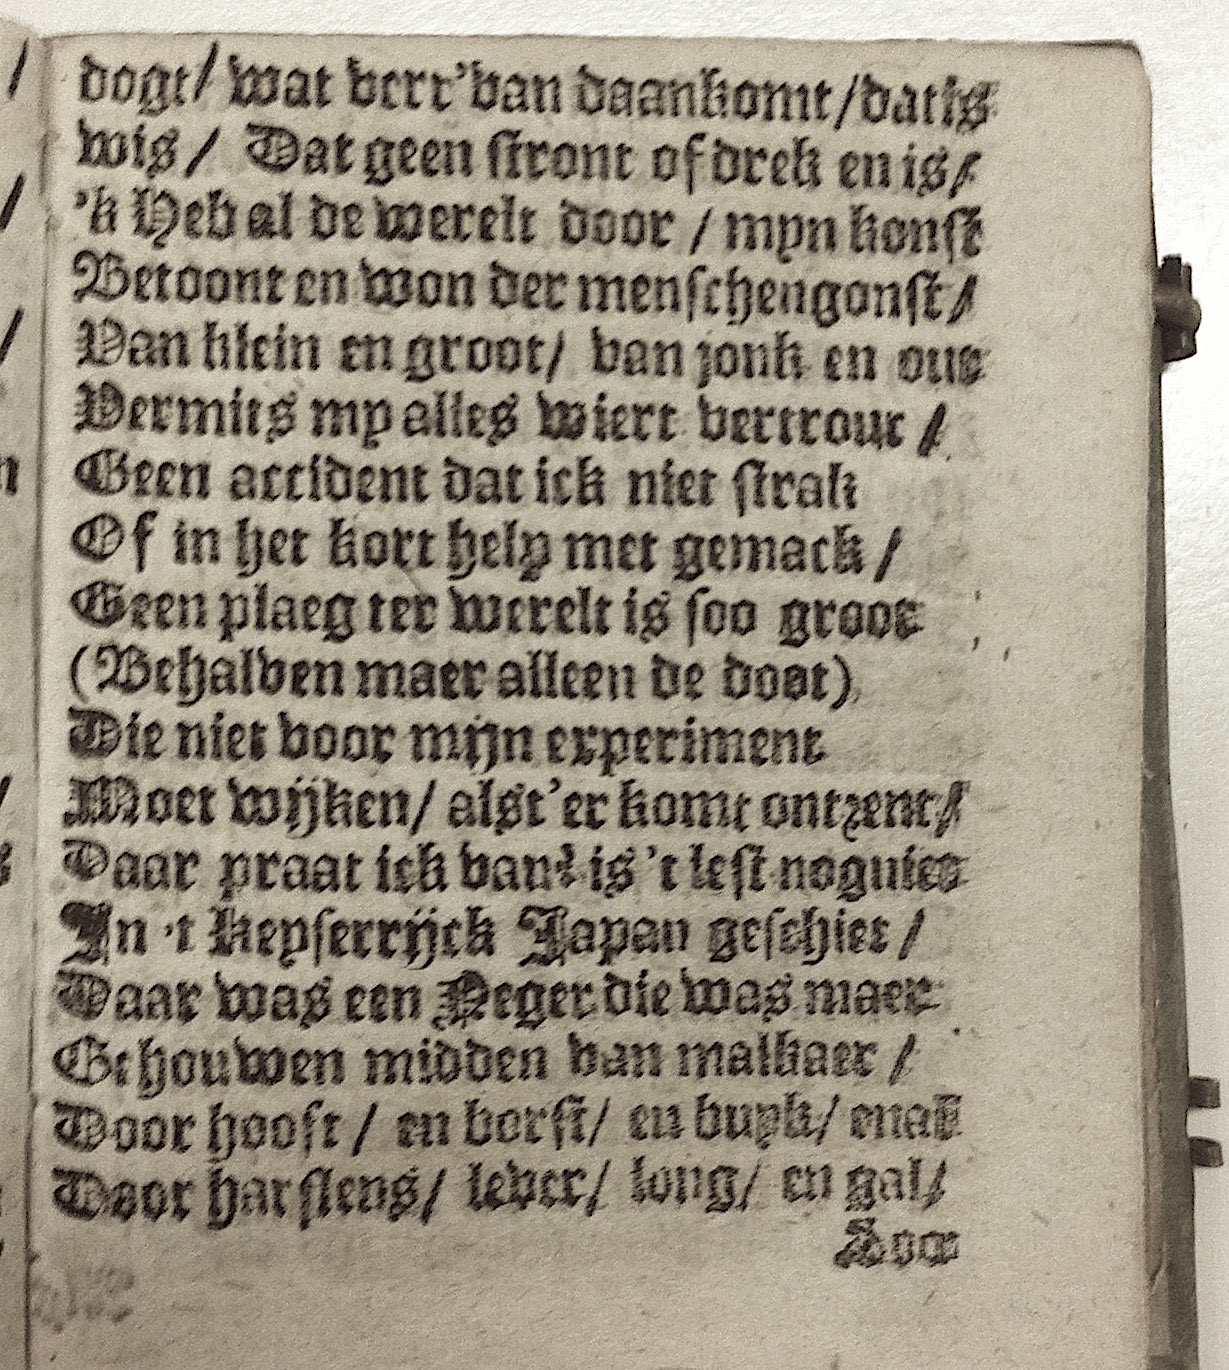 dogt/ wat verr' van daankomt/ dat is
wis/ Dat geen stront of drek en is/
'k Heb al de werelt door / myn konst
Betoont en won der menschen gonst/
Van klein en groot/ van jonk en out
Vermits my alles wiert vertrout /
Geen accident dat ick niet strak
Of in het kort help met gemack /
Geen plaeg ter werelt is soo groot
(Behalven maer alleen de doot)
Die niet voor mijn experiment
Moet wijken/ alst'er komt ontzent/
Daar praat ick van? is 't lest nog niet
In 't Keyserrijck Japan geschiet /
Daar was een Neger die was maer
Gehouwen midden van malkaer /
Door hooft / en borst/ en buyk/ en al
Door harslens/ lever/ long/ en gal/
Soo